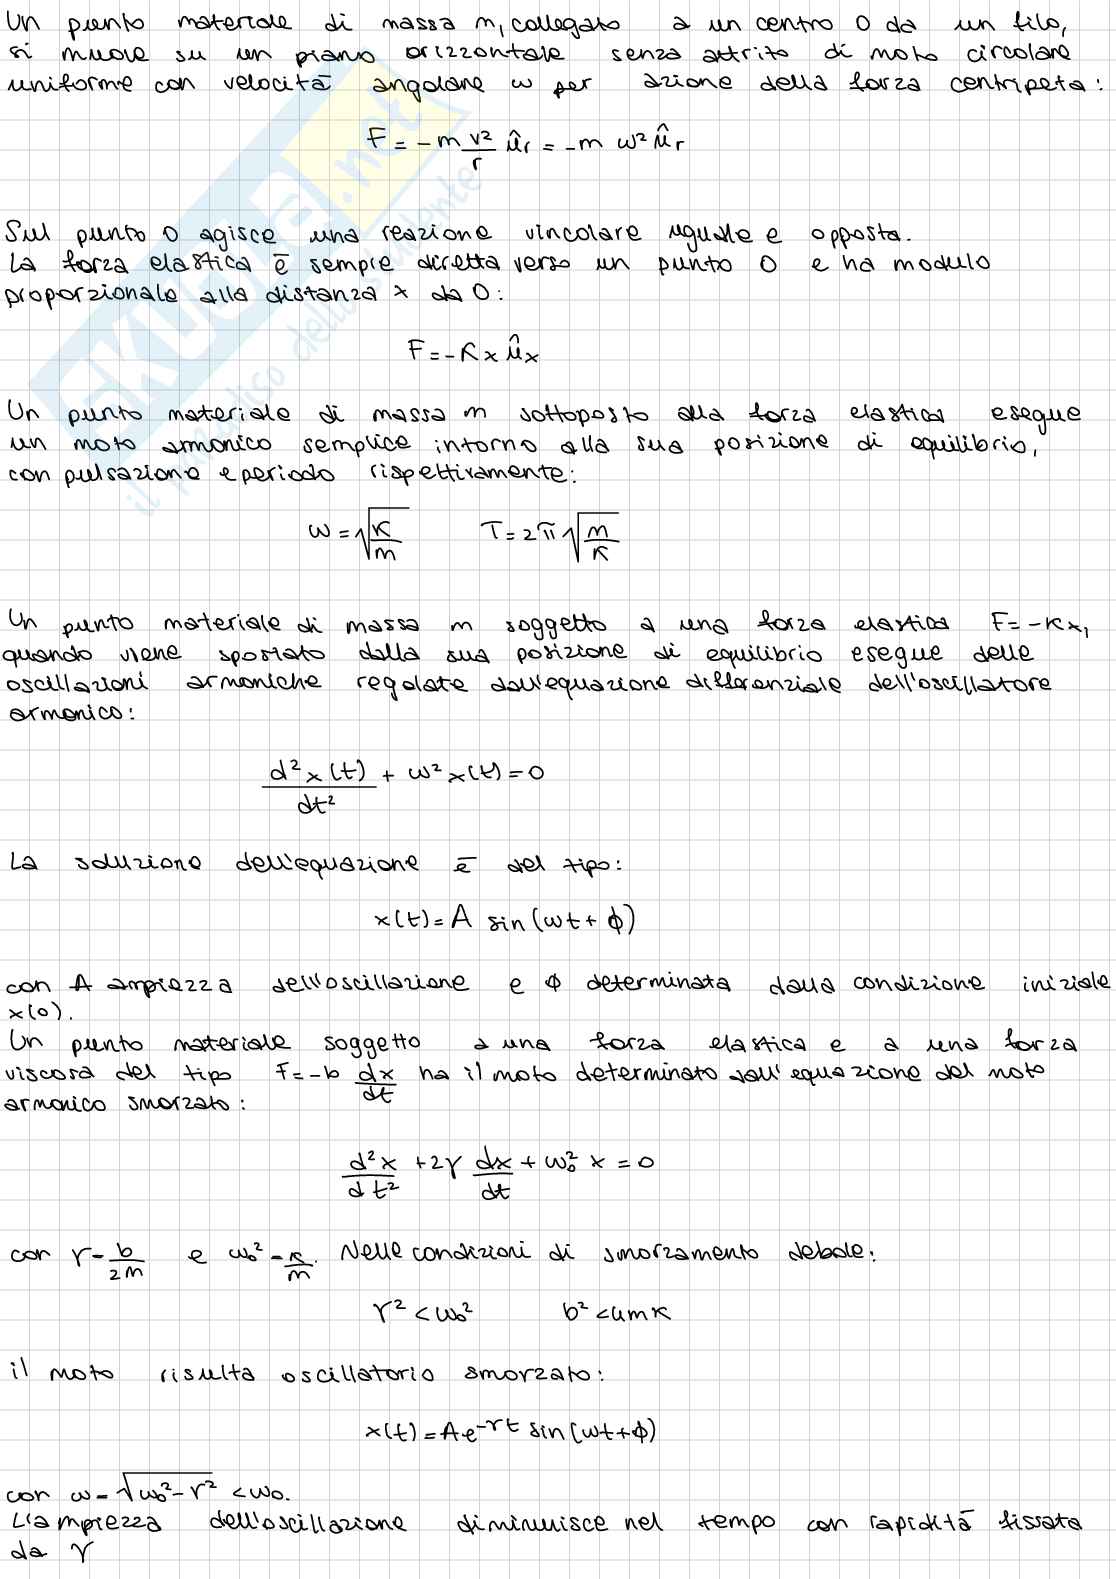 Un punto materiale di massa m, collegato a un centro O da un filo,
si muove su un piano orizzontale senza attrito di moto circolare
uniforme con velocità angolare ω per azione della forza centripeta:
F = -m v²/r û_r = -m ω² û_r
Sul punto O agisce una reazione vincolare uguale e opposta.
La forza elastica è sempre diretta verso un punto O e ha modulo
proporzionale alla distanza x da O:
F = -Kx û_x
Un punto materiale di massa m sottoposto alla forza elastica esegue
un moto armonico semplice intorno alla sua posizione di equilibrio,
con pulsazione e periodo rispettivamente:
ω = √(K/m) T = 2π √(m/K)
Un punto materiale di massa m soggetto a una forza elastica F = -Kx,
quando viene spostato dalla sua posizione di equilibrio esegue delle
oscillazioni armoniche regolate dall'equazione differenziale dell'oscillatore
armonico:
d²x(t)/dt² + ω²x(t) = 0
La soluzione dell'equazione è del tipo:
x(t) = A sin(ωt + ϕ)
con A ampiezza dell'oscillazione e ϕ determinata dalla condizione iniziale
x(0).
Un punto materiale soggetto a una forza elastica e a una forza
viscosa del tipo F = -b dx/dt ha il moto determinato dall'equazione del moto
armonico smorzato:
d²x/dt² + 2γ dx/dt + ω₀² x = 0
con γ = b/2m e ω₀² = K/m. Nelle condizioni di smorzamento debole:
γ² < ω₀² b² < 4mK
il moto risulta oscillatorio smorzato:
x(t) = Ae^-γt sin(ωt + ϕ)
con ω = √(ω₀² - γ²) < ω₀.
L'ampiezza dell'oscillazione diminuisce nel tempo con rapidità fissata
da γ
SKUOLA.net
il paradiso dello studente